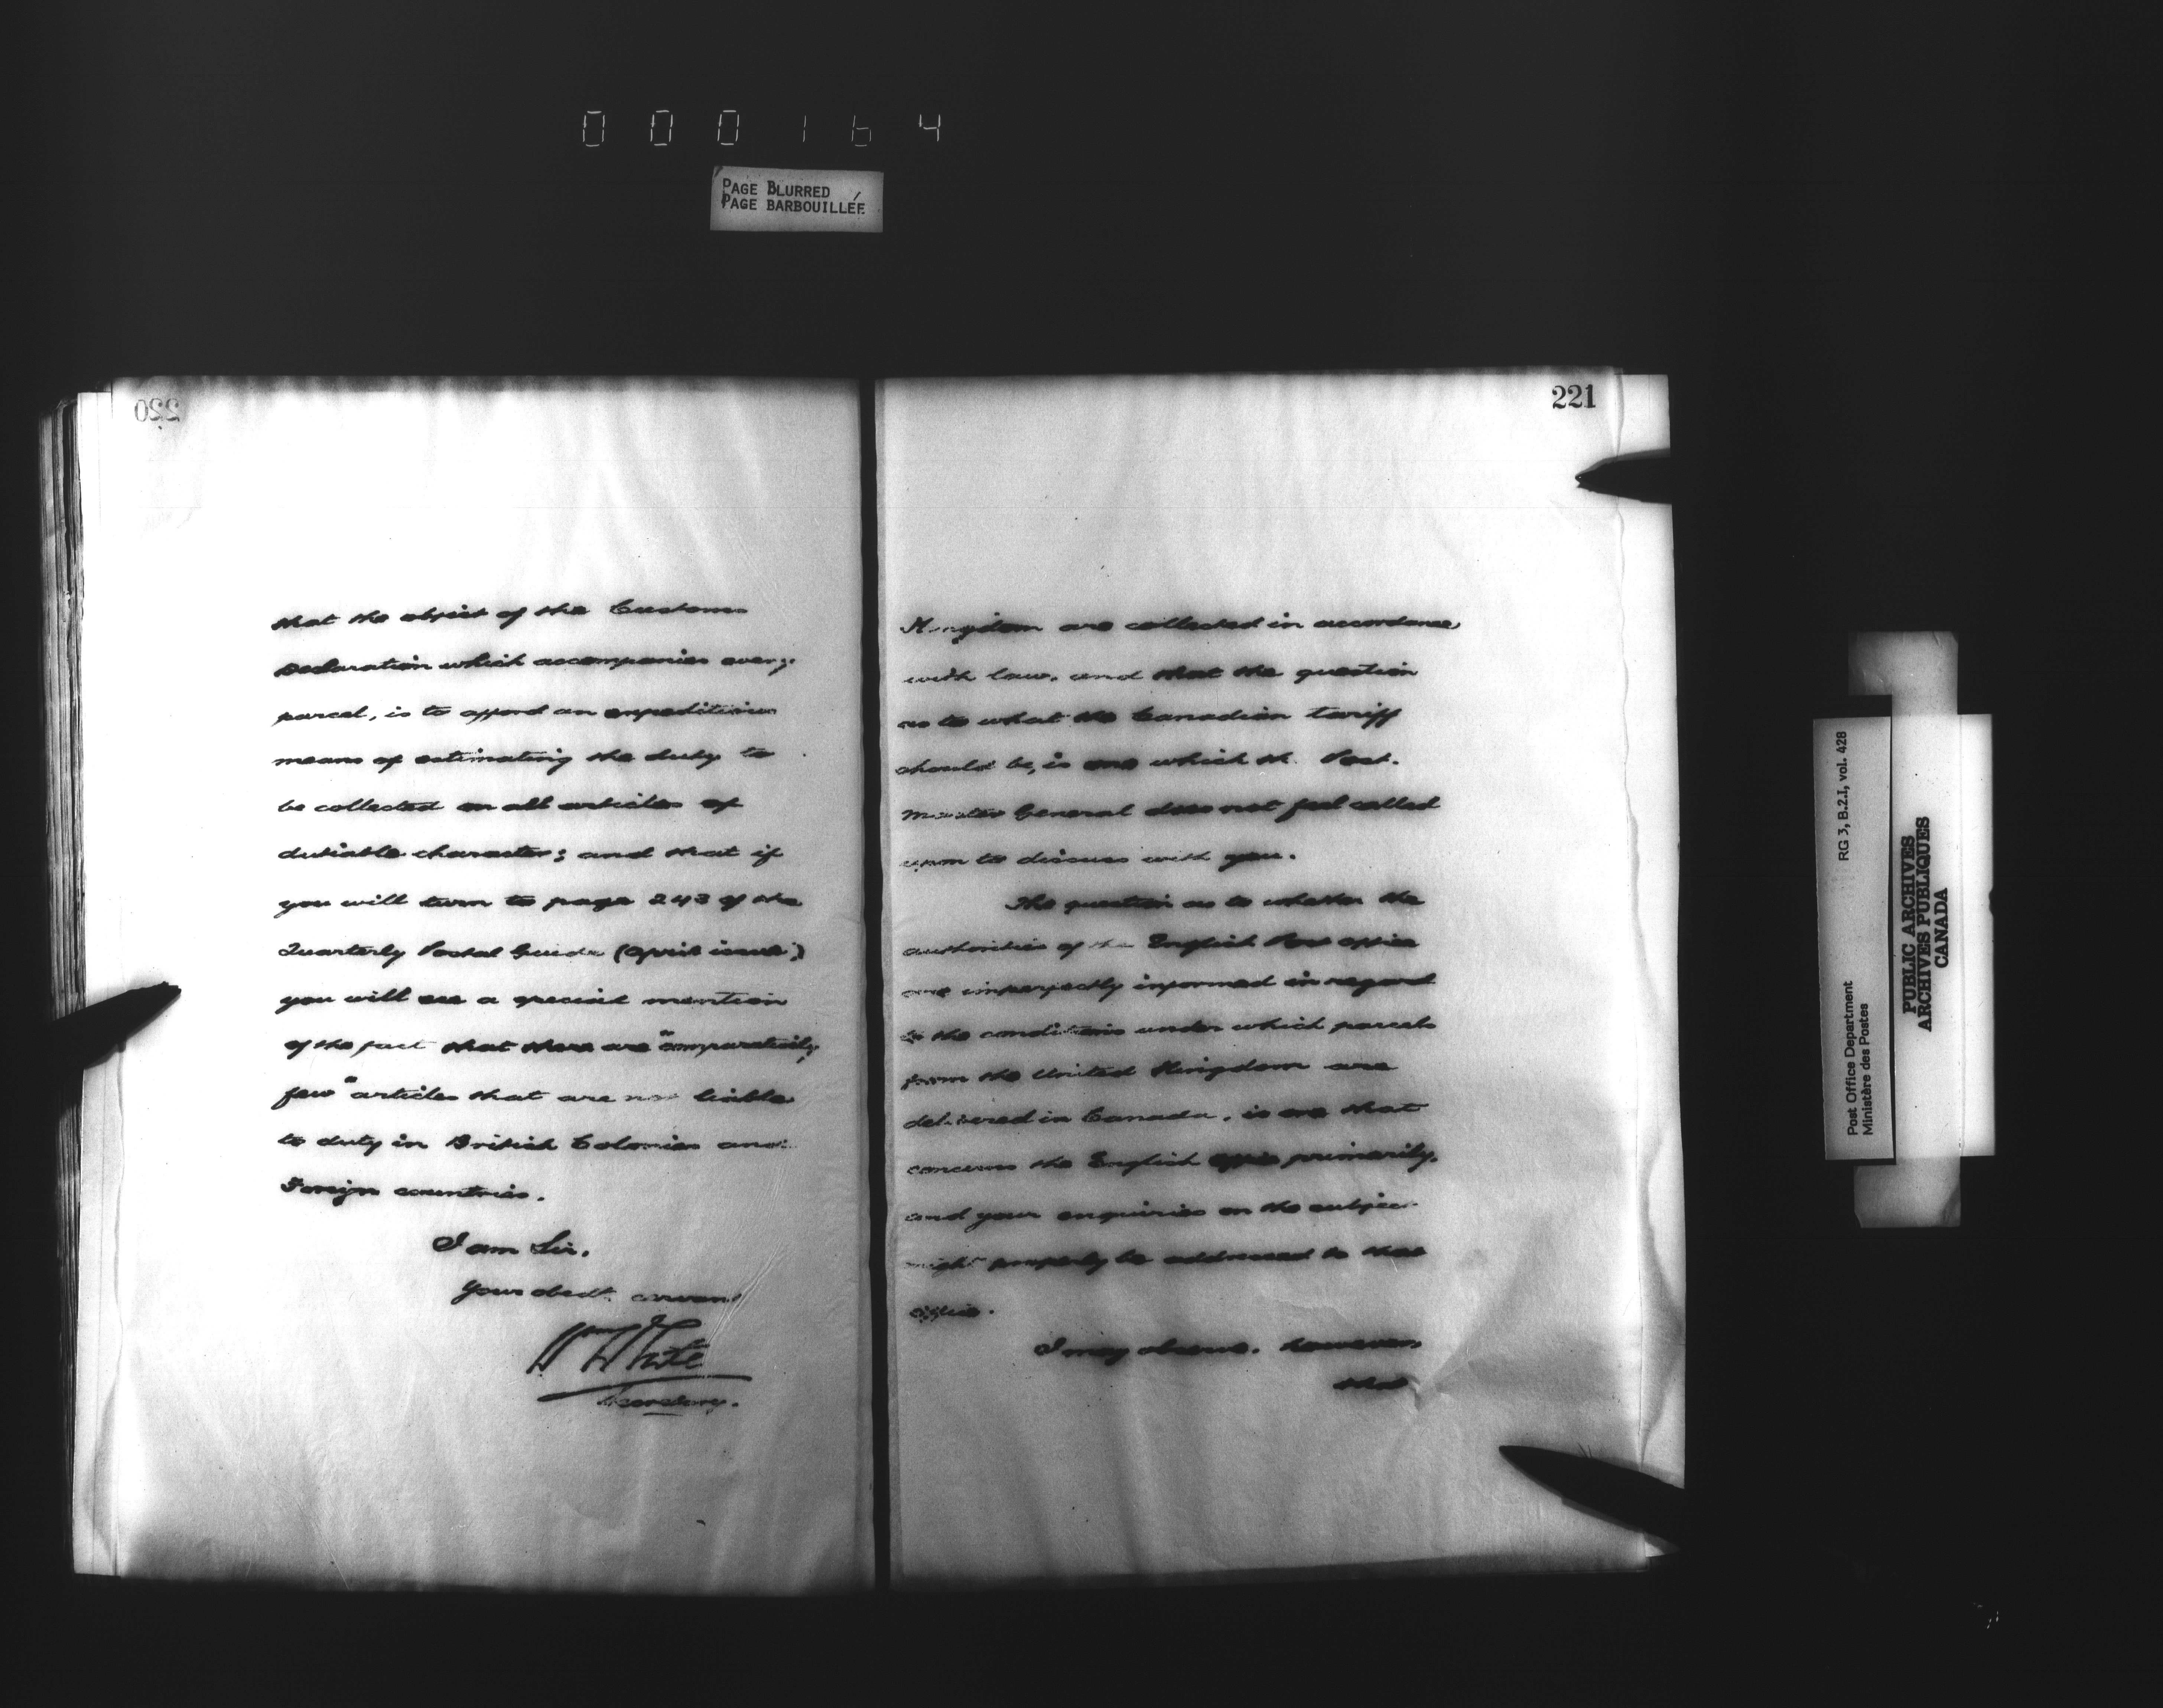 000164
PAGE BLURRED
PAGE BARBOUILLÉE
220
that the object of the Customs
Declaration which accompanies every
parcel, is to afford an expeditious
means of estimating the duty to
be collected on all articles of
dutiable character; and that if
you will turn to page 243 of the
Quarterly Postal Guide (April issue)
you will see a special mention
of the fact that there are "comparatively
few" articles that are not liable
to duty in British Colonies and
Foreign countries.
I am Sir,
Your obedt. servant
Wm White
Secretary.
221
Kingdom are collected in accordance
with law, and that the question
as to what the Canadian tariff
should be, is one which the Post-
master General does not feel called
upon to discuss with you.
The question as to whether the
authorities of the English Post office
are imperfectly informed in regard
to the conditions under which parcels
from the United Kingdom are
delivered in Canada, is one that
concerns the English office primarily,
and your enquiries on the subject
might properly be addressed to that
office.
I may observe, however,
that
Post Office Department
Ministère des Postes
RG 3, B.2.I, vol. 428
PUBLIC ARCHIVES
ARCHIVES PUBLIQUES
CANADA